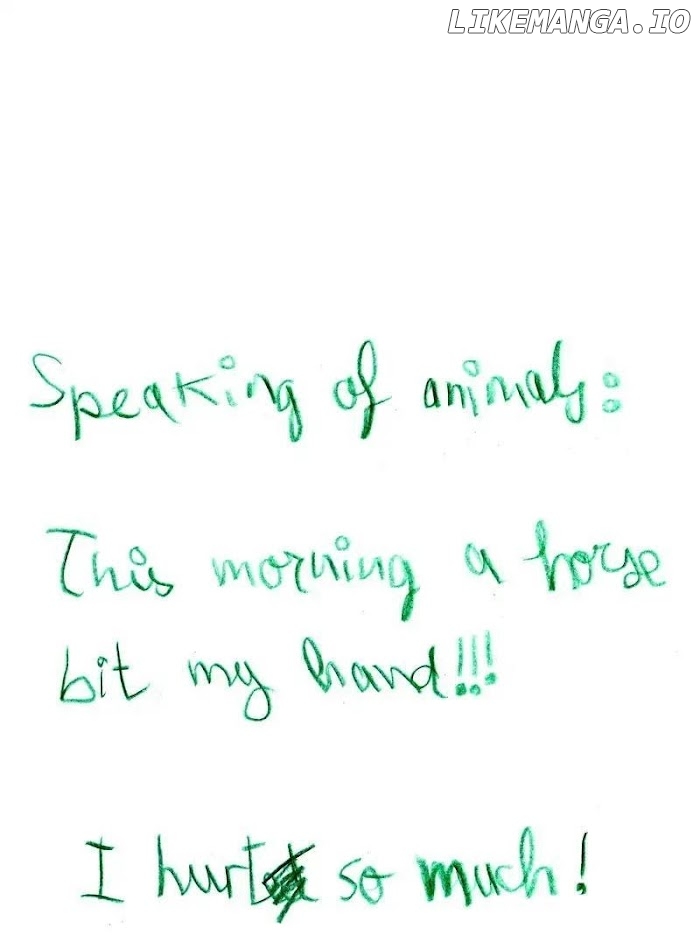 LIKEMANGA.IO
Speaking of animals:
This morning a horse
bit my hand!!!
I hurt so much!